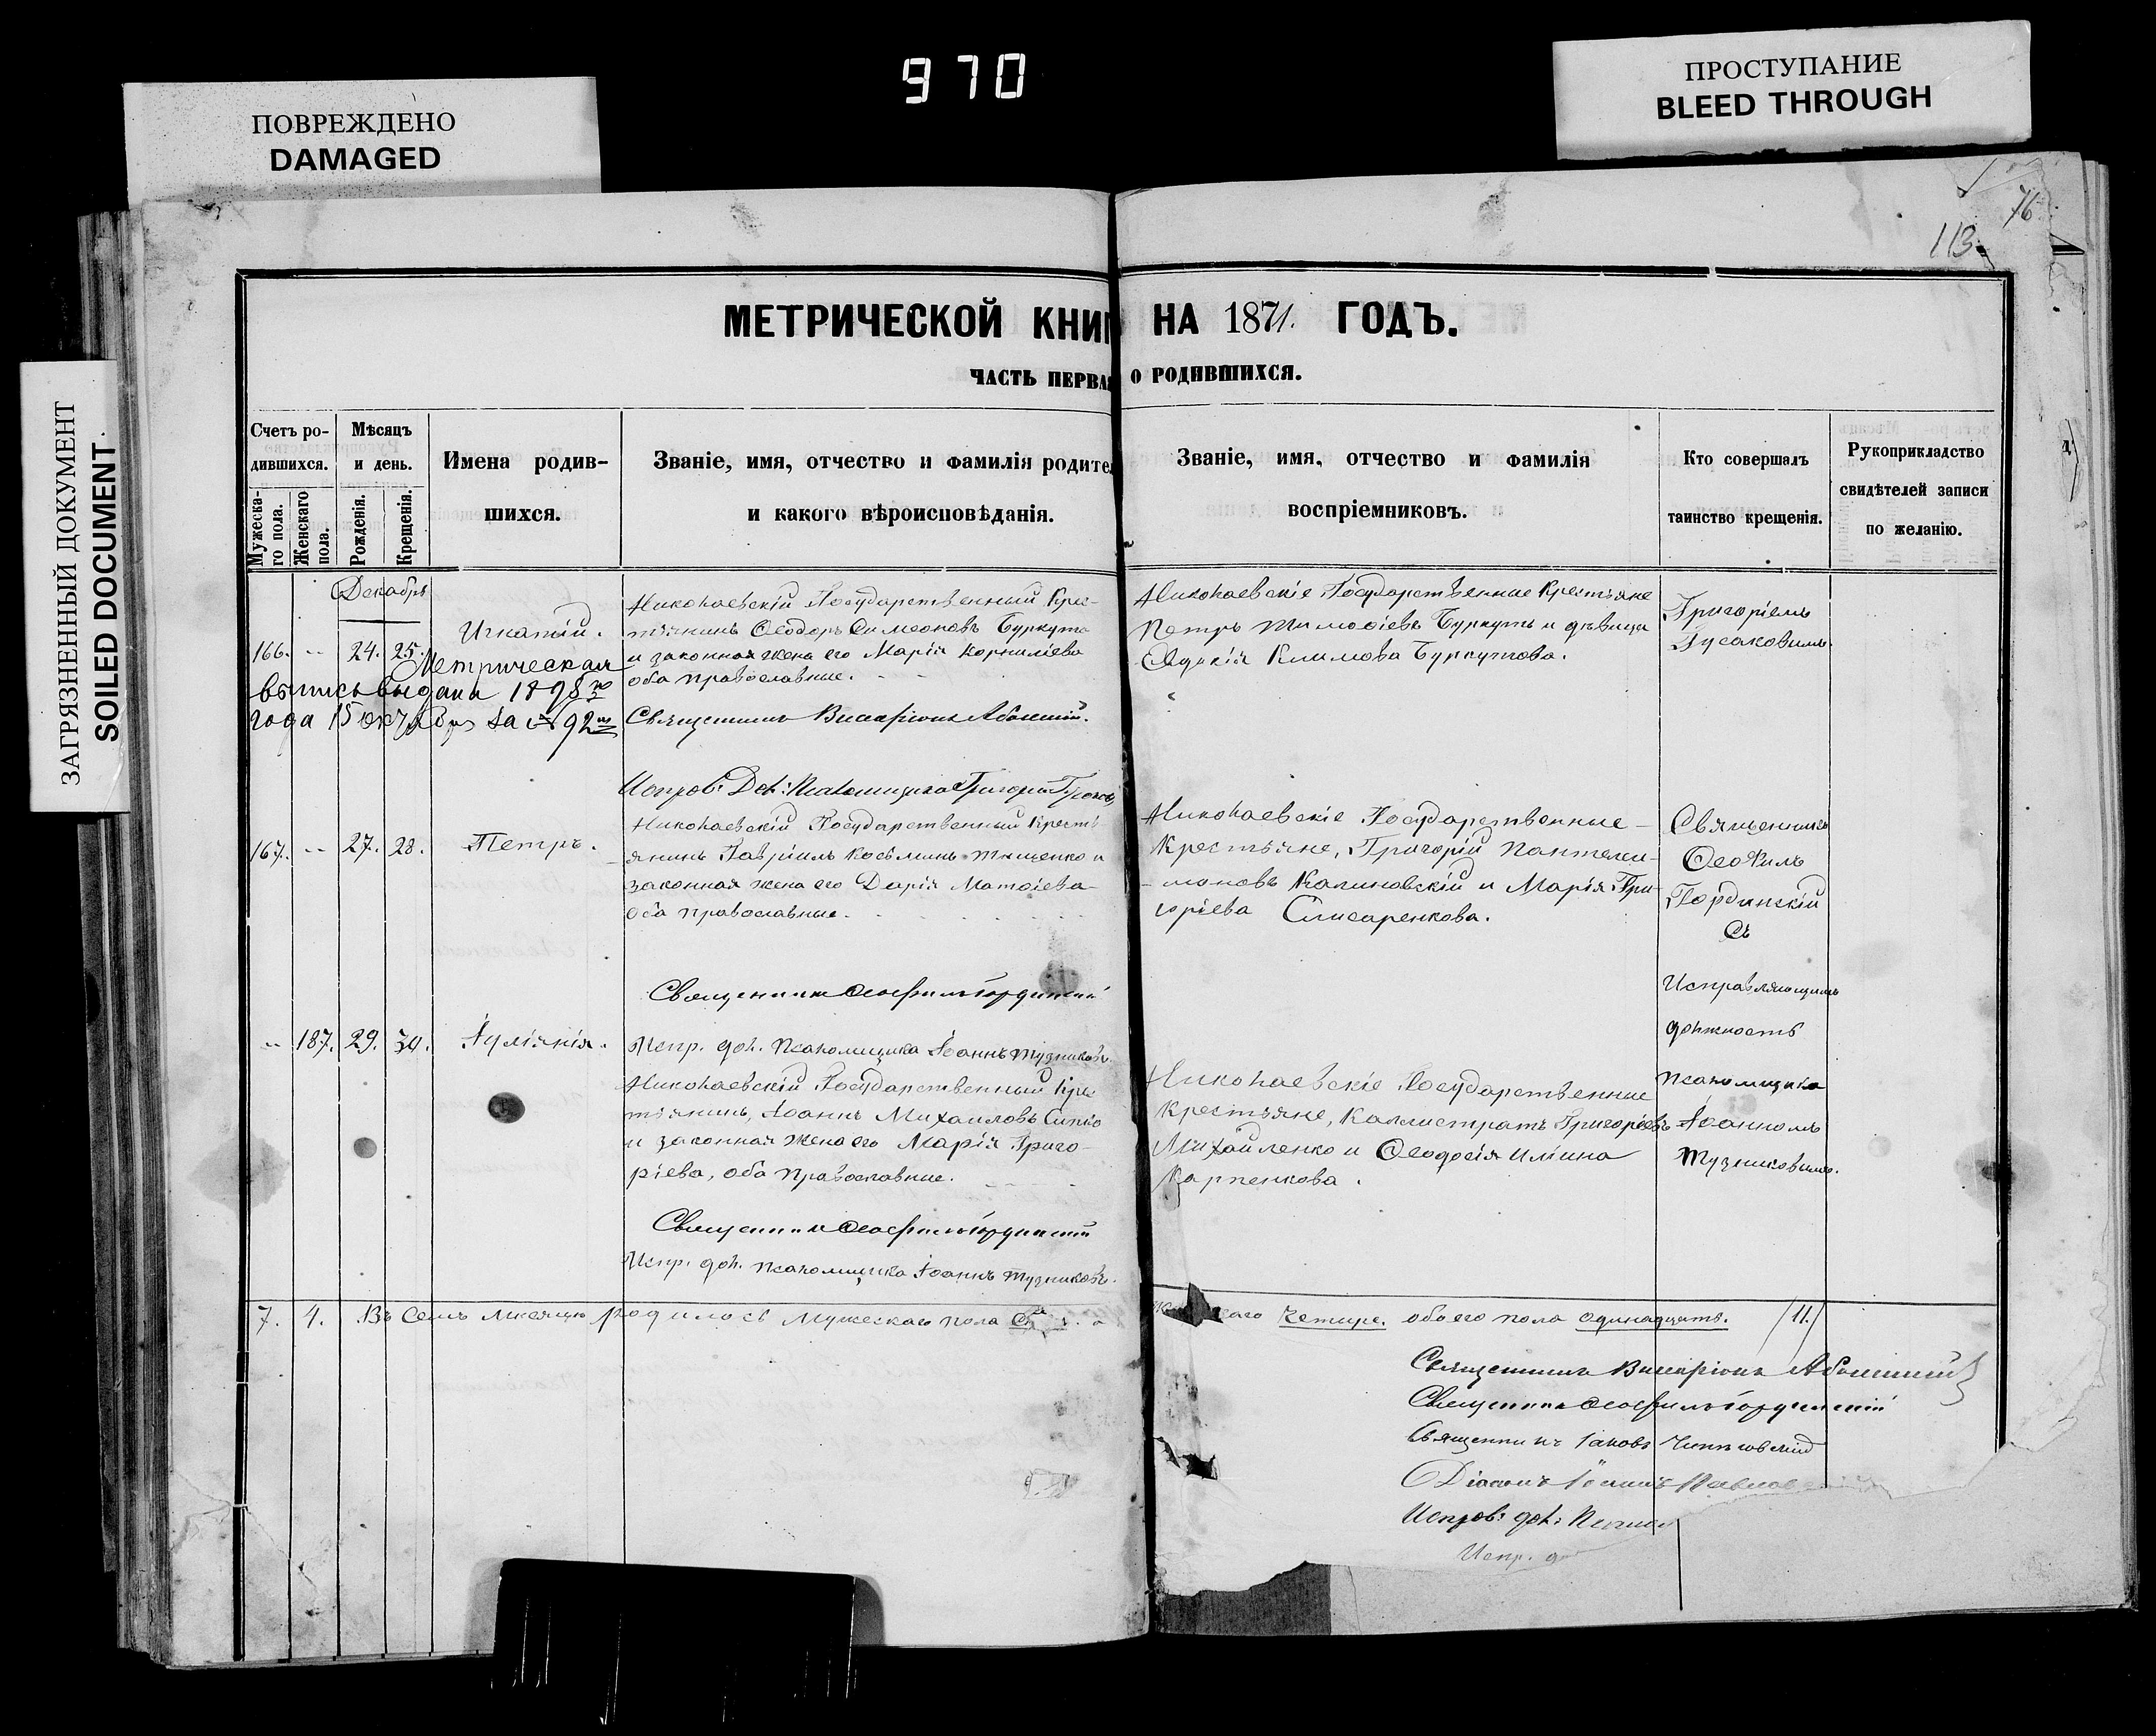 970
ПОВРЕЖДЕНО
DAMAGED
ПРОСТУПАНИЕ
BLEED THROUGH
ЗАГРЯЗНЕННЫЙ ДОКУМЕНТ
SOILED DOCUMENT
76
113
МЕТРИЧЕСКОЙ КНИГ НА 1871. ГОДЪ.
ЧАСТЬ ПЕРВАЯ О РОДИВШИХСЯ.
Счетъ ро-
дившихся.
Мужеска-
го пола.
Женскаго
пола.
Мѣсяцъ
и день.
Рожденія.
Крещенія.
Имена родив-
шихся.
Званіе, имя, отчество и фамилія родител
и какого вѣроисповѣданія.
Званіе, имя, отчество и фамилія
воспріемниковъ.
Кто совершалъ
таинство крещенія.
Рукоприкладство
свидѣтелей записи
по желанію.
Декабрь
166. 24. 25. Игнатій.
Метрическая
выпись выдана 1898 го
года 15 октября за № 92 м
Николаевскій Государственный Крес-
тьянинъ Ѳеодоръ Симеоновъ Буркутъ
и законная жена его Марія Корниліева
оба православные.
Священникъ Виссаріонъ
Николаевскіе Государственные Крестьяне
Петръ Тимоѳіевъ Буркутъ и дѣвица
Евдокія Климова Буркутова.
Григоріемъ
Гусаковымъ.
167. 27. 28. Петръ.
Николаевскій Государственный Кресть
янинъ Гавріилъ Косьминъ Тищенко и
законная жена его Дарія Матѳіева
оба православные.
Священникъ Ѳеофилъ Гордински
Испр. дол. Псаломщика Іоаннъ Тузниковъ.
Николаевскіе Государственные
Крестьяне, Григорій Пантелеи-
моновъ Калиновскій и Марія Гри
горіева Слисаренкова.
Священникъ
Ѳеофилъ
Гординскій
съ
Исправляющимъ
должность
псаломщика
Іоанномъ
Тузниковымъ.
187. 29. 30. Іуліанія.
Николаевскій Государственный Кре
тьянинъ, Іоаннъ Михаиловъ Сипко
и законная жена его Марія Григо-
ріева, оба православные.
Священникъ Ѳеофилъ Гординскій
Испр. дол. псаломщика Іоаннъ Тузниковъ.
Николаевскіе Государственные
Крестьяне, Каллистратъ Григоріевъ
Михайленко и Ѳеодосія Ильина
Карпенкова.
7. 4. Въ семъ мѣсяцѣ родилось мужескаго пола
четыре. обоего пола одинадцать. /11./
Священникъ Виссаріонъ
Священникъ Ѳеофилъ Гординскій
Священникъ Іаковъ
Діаконъ
Исправ: дол:
Испр. д